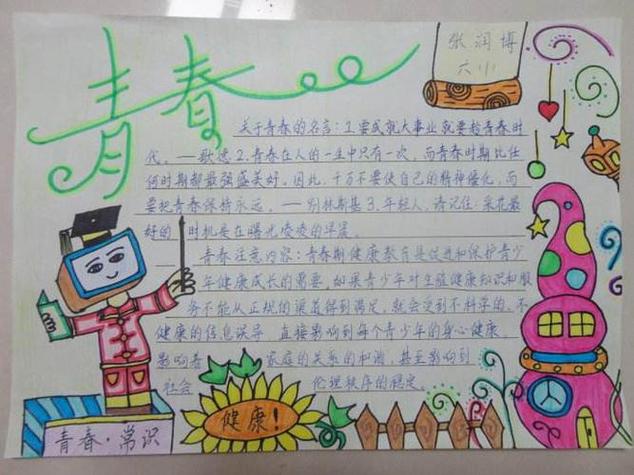 青春
张润博
六(11)
关于青春的名言:1.要成就大事业就要趁青春时
代。——歌德 2.青春在人的一生中只有一次,而青春时期比任
何时期都最强盛美好。因此,千万不要使自己的精神僵化,而
要把青春保持永远。——别林斯基 3.年轻人,请记住,采花最
好的时机是在曙光凌凌的早晨。
青春注意内容:青春期健康教育是促进和保护青少
年健康成长的需要,如果青少年对生殖健康知识和服
务不能从正规的渠道得到满足,就会受到不科学的、不
健康的信息误导,直接影响到每个青少年的身心健康,
影响着家庭的关系的和谐,甚至影响到
社会伦理秩序的稳定。
健康!
青春·常识